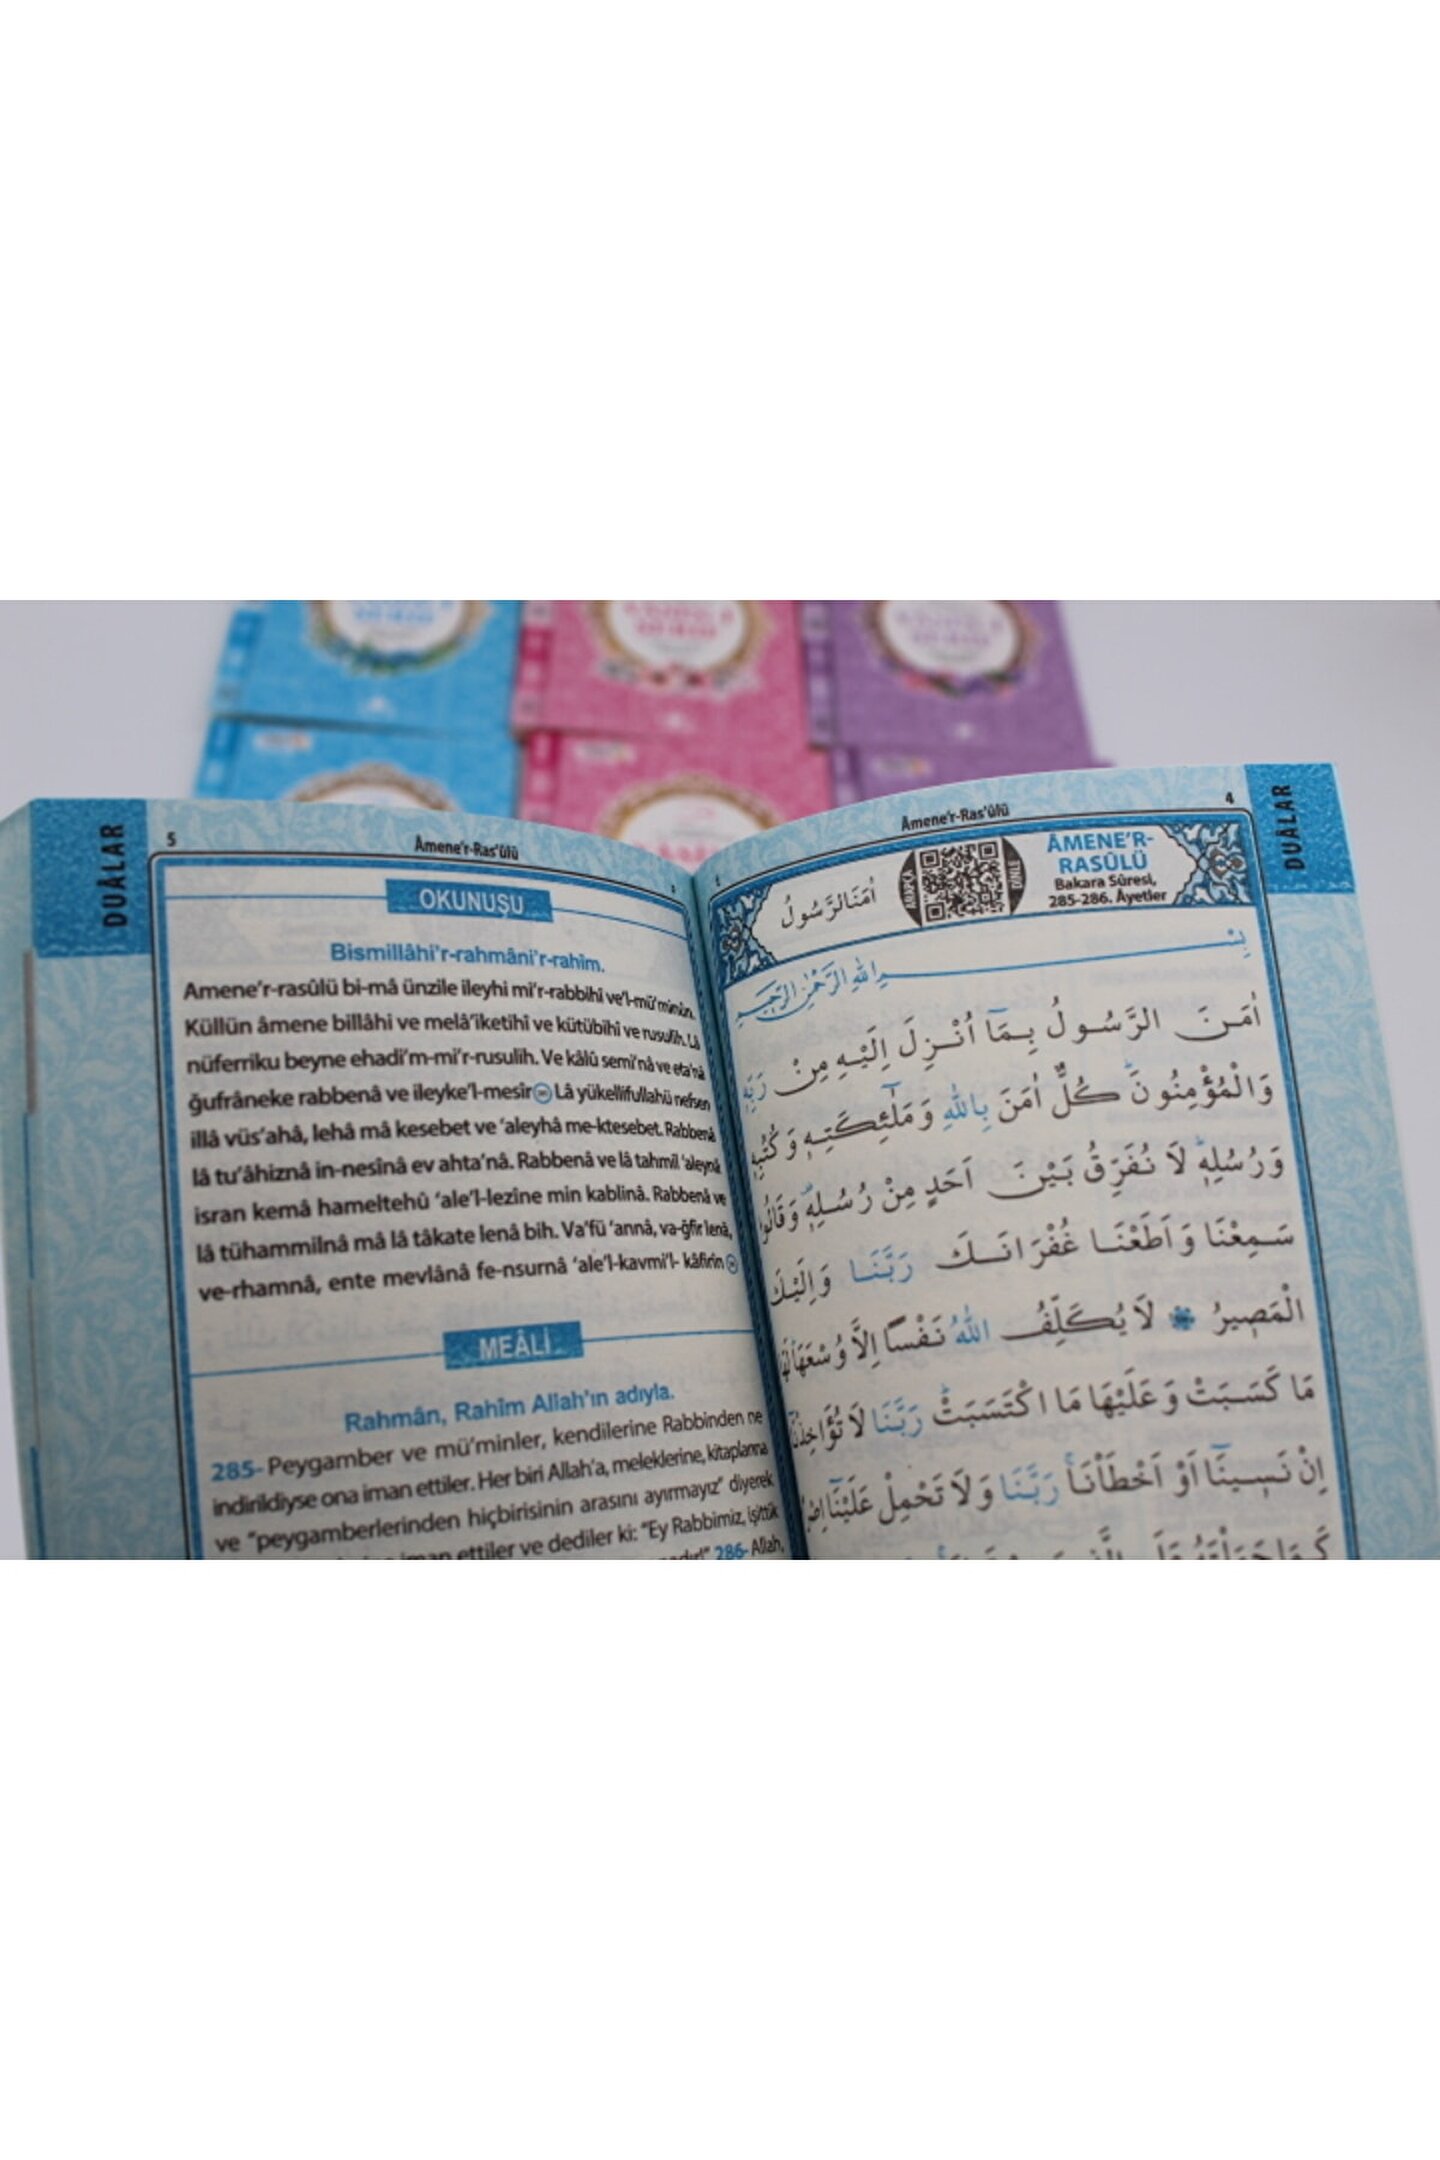 DUÂLAR
5
Âmene’r-Ras’ûlü
OKUNUŞU
Bismillâhi’r-rahmâni’r-rahîm.
Amene’r-rasûlü bi-mâ ünzile ileyhi mi’r-rabbihî ve’l-mü’minûn.
Küllün âmene billâhi ve melâ’iketihî ve kütübihî ve rusulih. Lâ
nüferriku beyne ehadi’m-mi’r-rusulih. Ve kâlû semi’nâ ve eta’nâ
ğufrâneke rabbenâ ve ileyke’l-mesîr Lâ yükellifullahü nefsen
illâ vüs’ahâ, lehâ mâ kesebet ve ‘aleyhâ me-ktesebet. Rabbenâ
lâ tu’âhiznâ in-nesînâ ev ahta’nâ. Rabbenâ ve lâ tahmil ‘aleynâ
isran kemâ hameltehû ‘ale’l-lezîne min kablinâ. Rabbenâ ve
lâ tühammilnâ mâ lâ tâkate lenâ bih. Va’fü ‘annâ, va-ğfir lenâ,
ve-rhamnâ, ente mevlânâ fe-nsurnâ ‘ale’l-kavmi’l- kâfirîn
MEÂLİ
Rahmân, Rahîm Allah’ın adıyla.
285- Peygamber ve mü’minler, kendilerine Rabbinden ne
indirildiyse ona iman ettiler. Her biri Allah’a, meleklerine, kitaplarına
ve “peygamberlerinden hiçbirisinin arasını ayırmayız” diyerek
iman ettiler ve dediler ki: “Ey Rabbimiz, işittik
286- Allah,
Âmene’r-Ras’ûlü
4
DUÂLAR
اٰمَنَالرَّسُولُ
ARAPÇA
DİNLE
ÂMENE’R-
RASÛLÜ
Bakara Sûresi,
285-286. Âyetler
بِسْمِ اللّٰهِ الرَّحْمٰنِ الرَّحِيمِ
اٰمَنَ الرَّسُولُ بِمَٓا اُنْزِلَ اِلَيْهِ مِنْ رَبِّهٖ
وَالْمُؤْمِنُونَۜ كُلٌّ اٰمَنَ بِاللّٰهِ وَمَلٰٓئِكَتِهٖ وَكُتُبِهٖ
وَرُسُلِهٖۜ لَا نُفَرِّقُ بَيْنَ اَحَدٍ مِنْ رُسُلِهٖۜ وَقَالُوا
سَمِعْنَا وَاَطَعْنَا غُفْرَانَكَ رَبَّنَا وَاِلَيْكَ
الْمَصٖيرُ لَا يُكَلِّفُ اللّٰهُ نَفْسًا اِلَّا وُسْعَهَاۜ لَهَا
مَا كَسَبَتْ وَعَلَيْهَا مَا اكْتَسَبَتْۜ رَبَّنَا لَا تُؤَاخِذْنَٓا
اِنْ نَسٖينَٓا اَوْ اَخْطَأْنَاۚ رَبَّنَا وَلَا تَحْمِلْ عَلَيْنَٓا